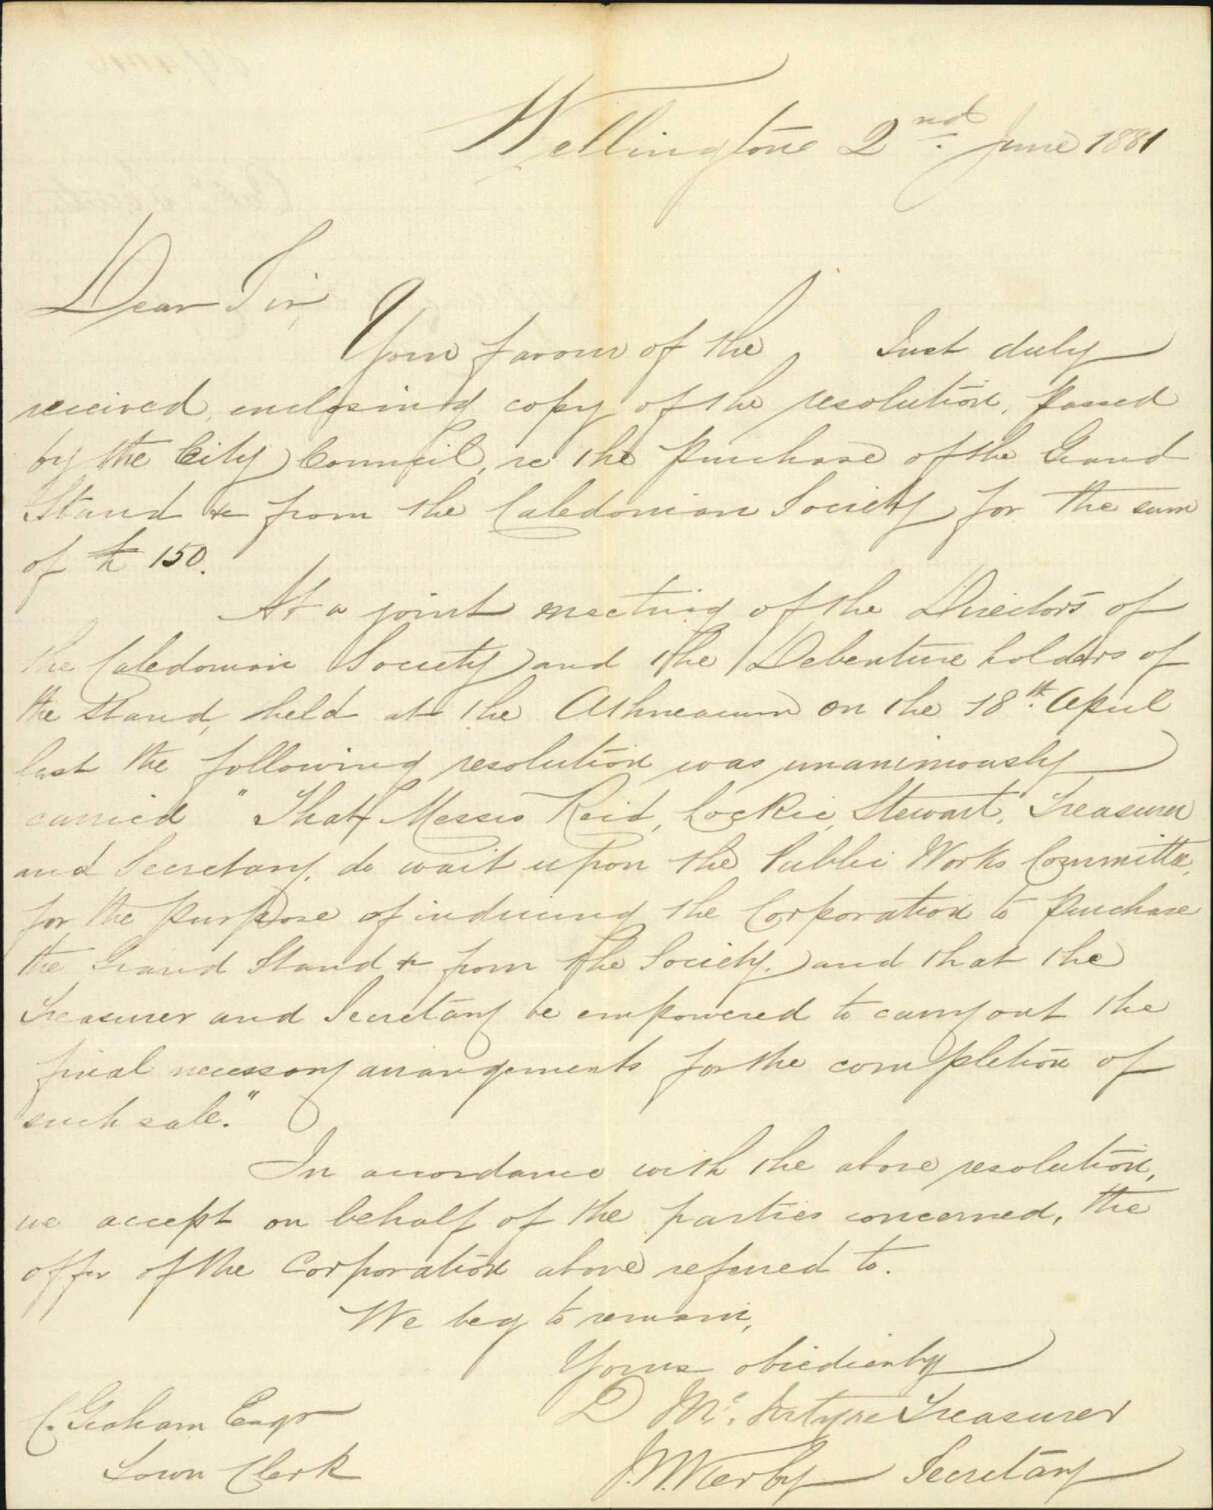 Wellington 2nd June 1881
Dear Sir,
Your favour of the Inst duly
received, enclosing copy of the resolution, passed
by the City Council, re the purchase of the Grand
Stand &c from the Caledonian Society for the sum
of £ 150.
At a joint meeting of the Directors of
the Caledonian Society and the Debenture holders of
the Stand, held at the Athneaeum on the 18th. April
last the following resolution was unanimously
carried "That Messrs Reid, Lockie, Stewart, Treasurer
and Secretary, do wait upon the Public Works Committee,
for the purpose of inducing the Corporation to purchase
the Grand Stand &c from the Society, and that the
Treasurer and Secretary be empowered to carry out the
final necessary arrangements for the completion of
such sale."
In accordance with the above resolution,
we accept on behalf of the parties concerned, the
offer of the Corporation above referred to.
We beg to remain,
Yours obediently
D Mc. Intyre Treasurer
J.W. Kerby Secretary
C. Graham Esqr
Town Clerk